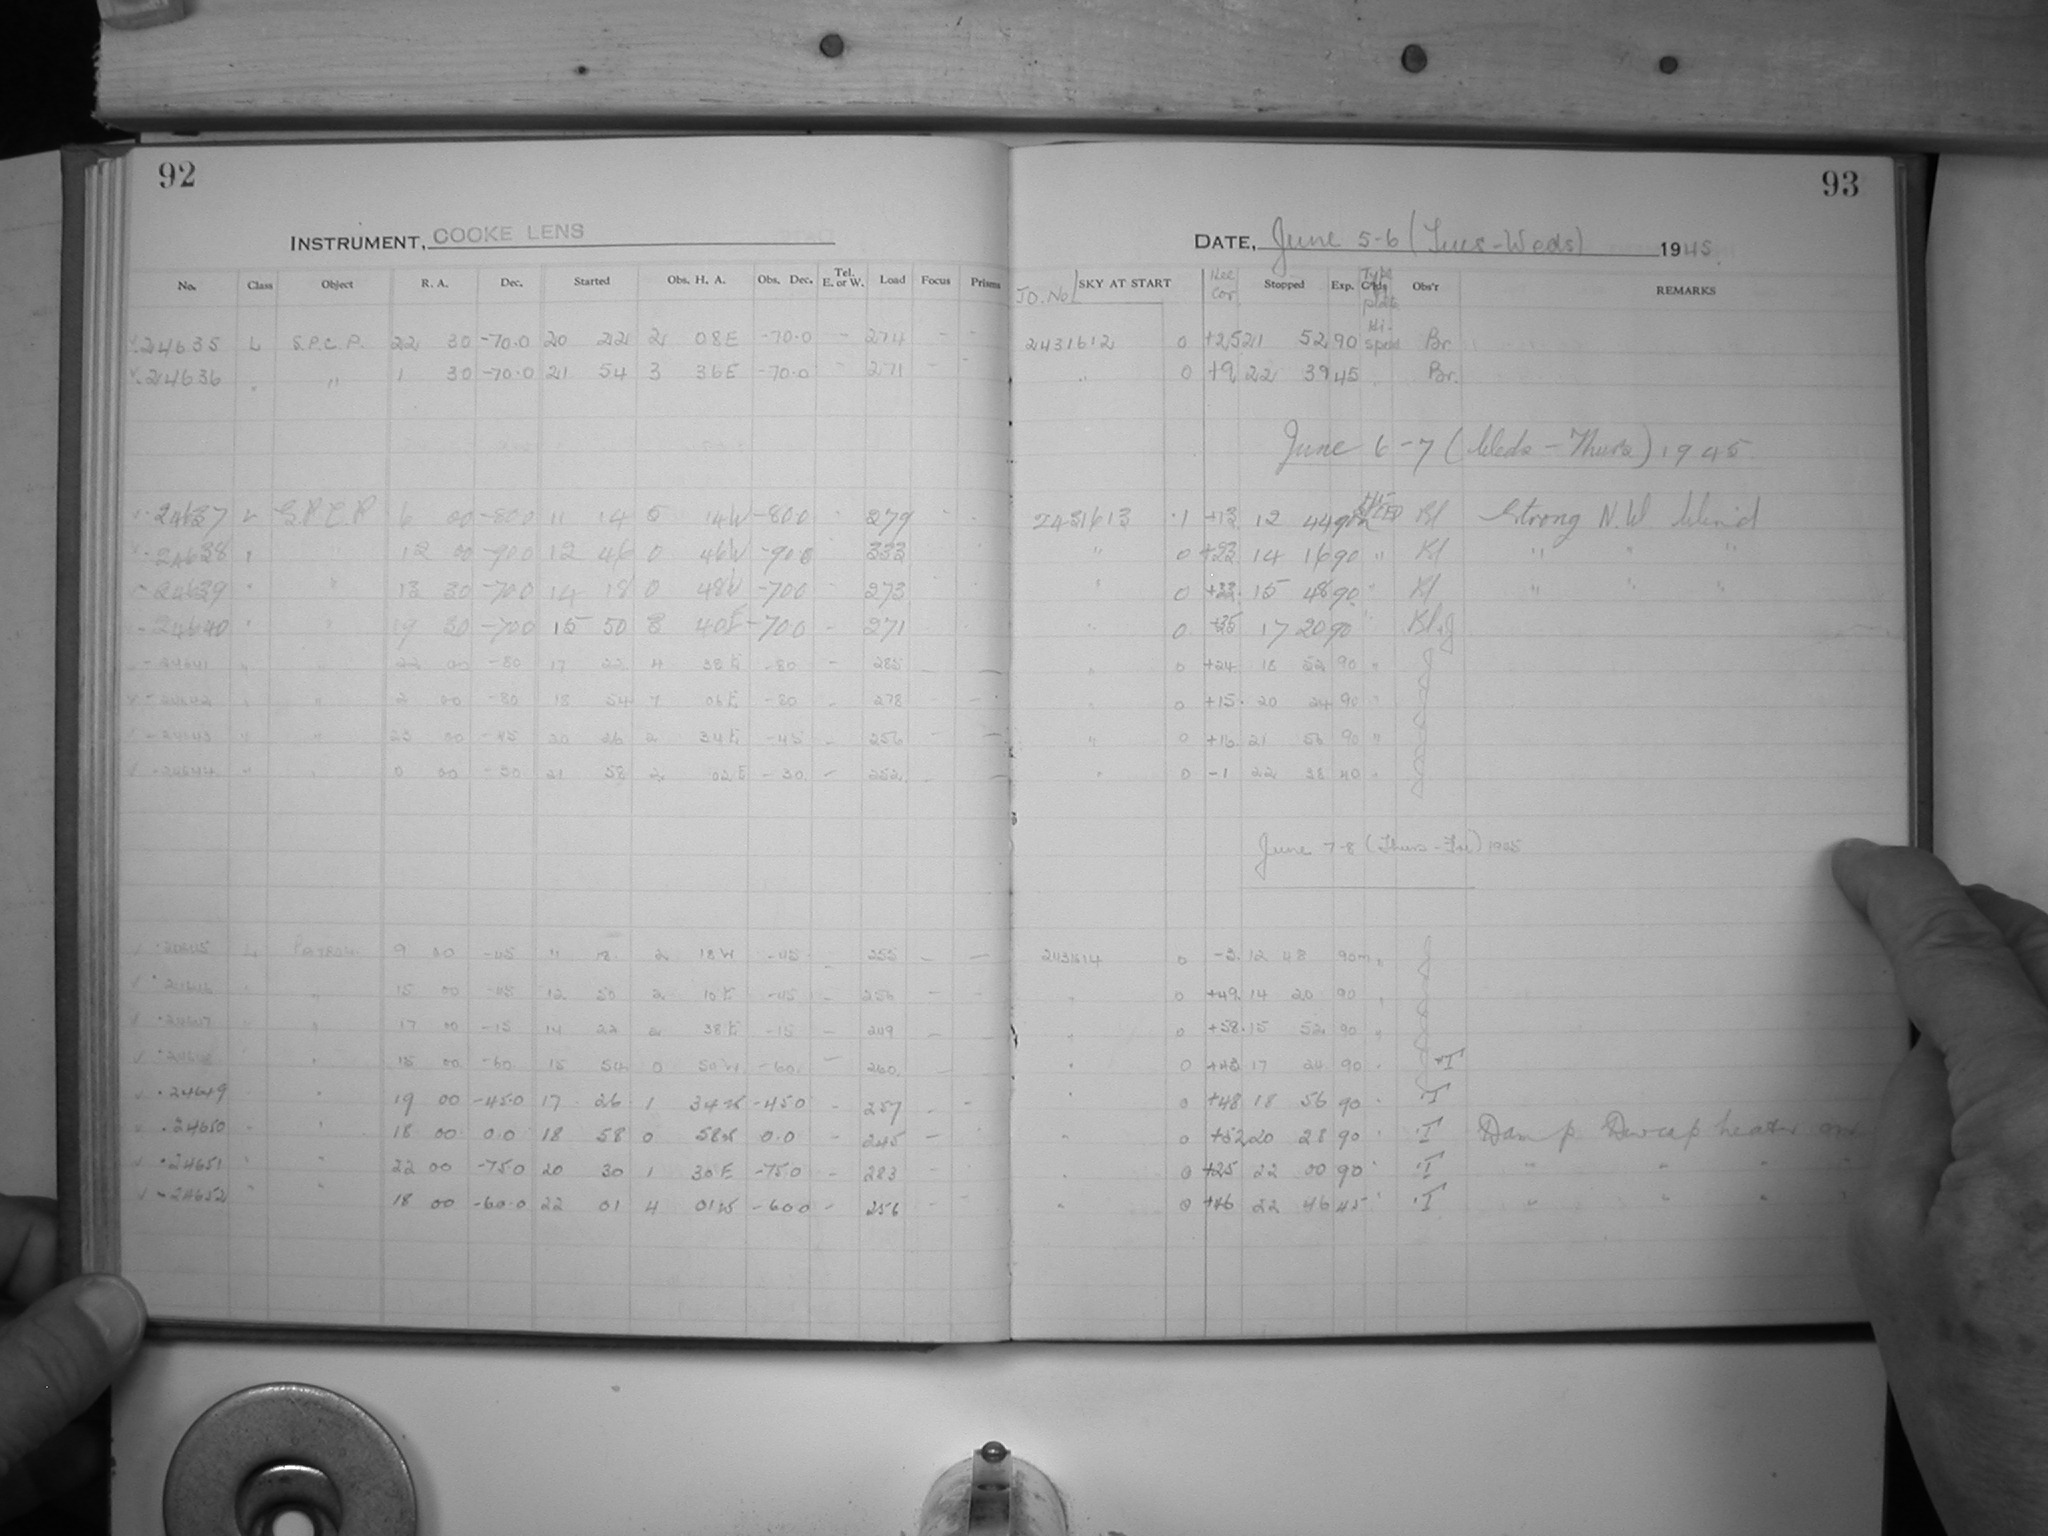 92
INSTRUMENT, COOKE LENS
No. Class Object R. A. Dec. Started Obs. H. A. Obs. Dec. Tel. E. or W. Load Focus Prisms
24635 L S.P.C.P. 22 30 -70.0 20 22 2 08E -70.0 - 274 - -
24636 " " 1 30 -70.0 21 54 3 36E -70.0 - 271 - -
24637 L S.P.C.P 6 00 -80.0 11 14 5 14W -80.0 279
24638 " " 12 00 -90.0 12 46 0 46W -90.0 333
24639 " " 13 30 -70.0 14 18 0 48W -70.0 273
24640 " " 19 30 -70.0 15 50 3 40E -70.0 - 271
24641 " " 22 00 -80 17 22 4 38E -80 - 285 - -
24642 " " 2 00 -80 18 54 7 06E -80 - 278 - -
24643 " " 23 00 -45 20 26 2 34E -45 - 256 - -
24644 " " 0 00 -30 21 58 2 02E -30 - 252 - -
24645 L Patrol 9 00 -45 11 18 2 18W -45 - 255 - -
24646 " " 15 00 -45 12 50 2 10E -45 - 256 - -
24647 " " 17 00 -15 14 22 2 38E -15 - 249 - -
24648 " " 15 00 -60 15 54 0 50W -60 - 260 -
24649 " " 19 00 -45.0 17 26 1 34 -45.0 - 257 - -
24650 " " 18 00 0.0 18 58 0 58 0.0 - 245 - -
24651 " " 22 00 -75.0 20 30 1 30E -75.0 - 283 -
24652 " " 18 00 -60.0 22 01 4 01W -60.0 - 256 - -
93
DATE, June 5-6 (Tues-Weds) 1945
JD. No. SKY AT START Rec Cor. Stopped Exp. Type plate Obs'r REMARKS
2431612 0 +25 21 52 90 Hi-speed Br.
" 0 +9 22 39 45 " Br.
June 6-7 (Weds - Thurs) 1945
2431613 .1 +13 12 44 90 Bl Strong N.W Wind
" 0 +23 14 16 90 " Bl " " "
" 0 +33 15 48 90 " Bl " " "
" 0 +35 17 20 90 " Bl+J
" 0 +24 18 52 90 " J
" 0 +15 20 24 90 " J
" 0 +16 21 56 90 " J
" 0 -1 22 38 40 " J
June 7-8 (Thurs - Fri) 1945
2431614 0 -3 12 48 90m " J
" 0 +49 14 20 90 " J
" 0 +58 15 52 90 " J
" 0 17 24 90 " J+T
" 0 +48 18 56 90 " T
" 0 +52 20 28 90 " T Damp Dewcap heater on
" 0 +25 22 00 90 " T " " " "
" 0 22 46 45 " T " " " "